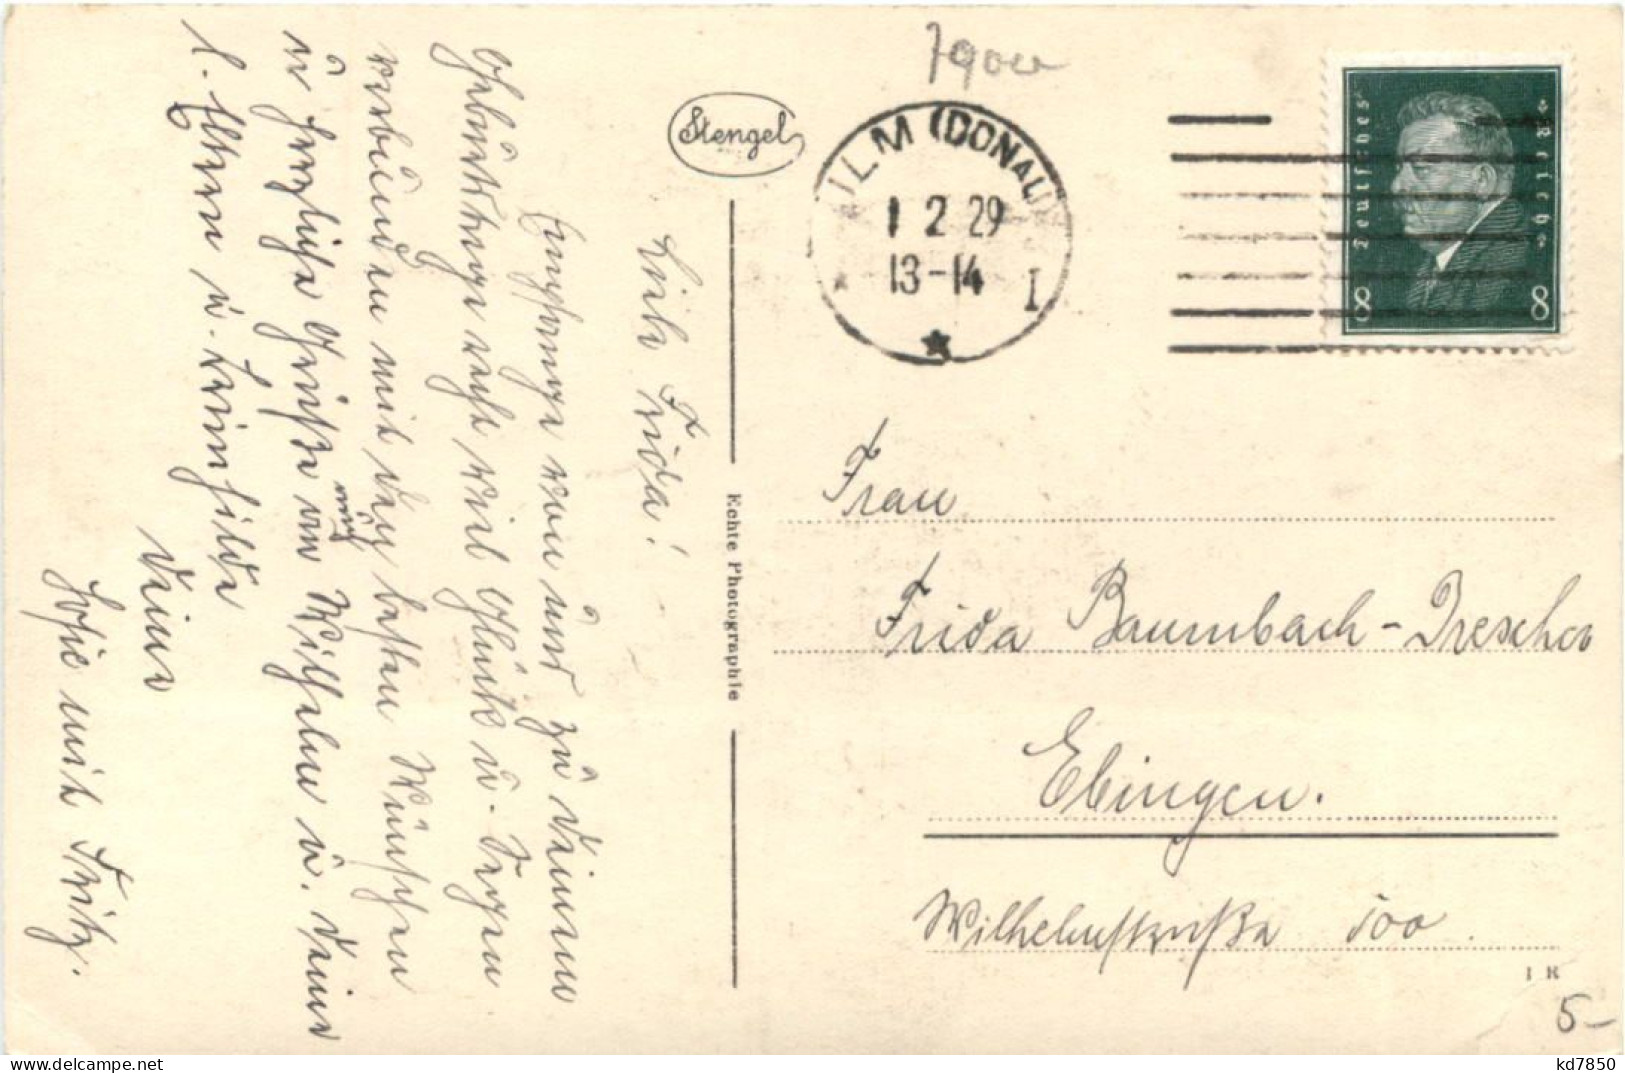 Liebe Frida!
Empfange von uns zu Deinem
Geburtstage recht viel Glück u. Segen
verbunden mit den besten Wünschen
u. herzliche Grüße an Wilhelm u. Deine
auch von
l. Eltern u. Reinhilde
Deine
Sofie mit Fritz.
Stengel
Echte Photographie
ULM (DONAU)
1 2 29
13-14
I
Deutsches Reich
8 8
Frau
Frida Baumbach-Drescher
Ebingen.
Wilhelmstraße 100.
I R
5-
kd7850